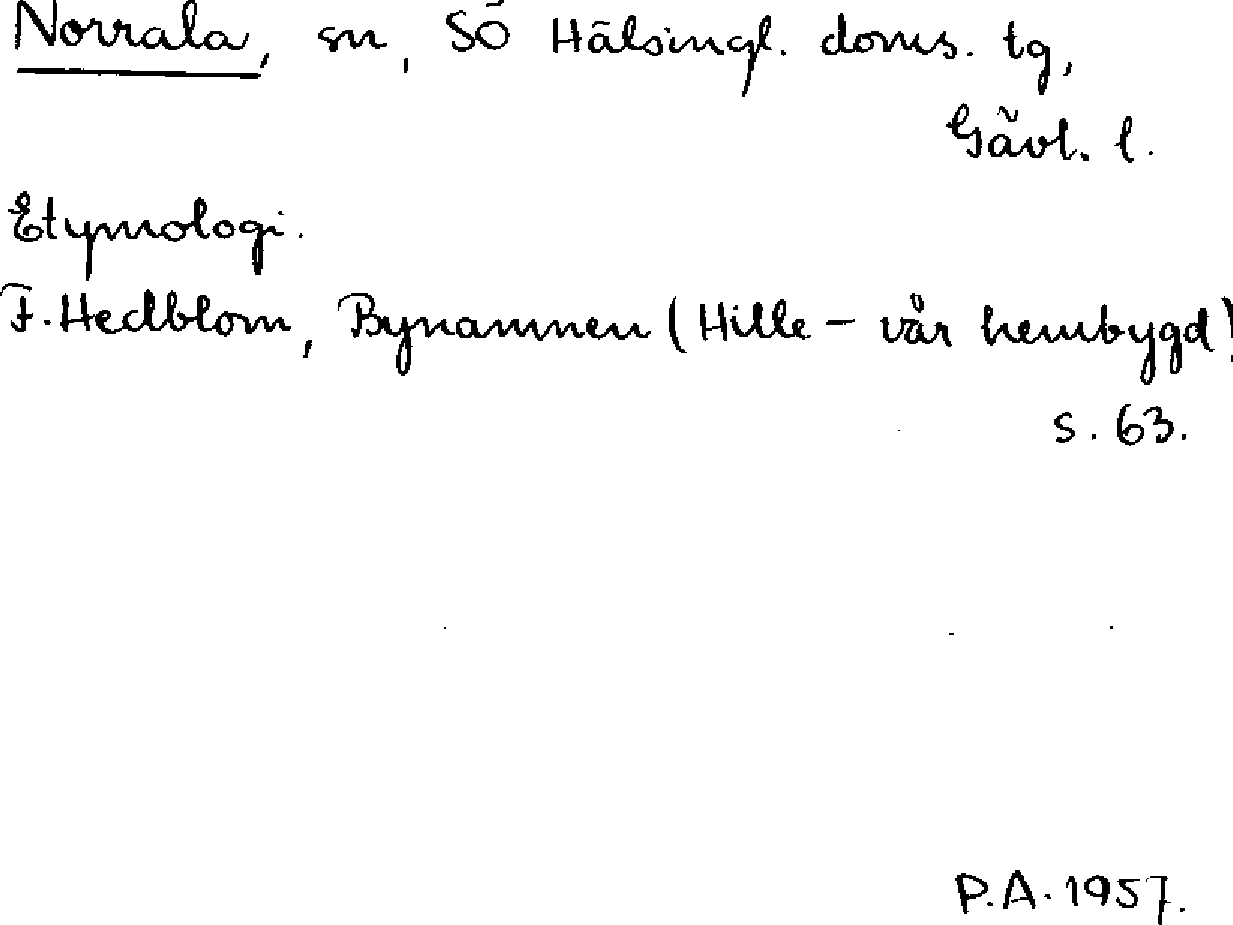 Norrala, sn, SÖ Hälsingl. doms. tg,
Gävl. l.
Etymologi.
F. Hedblom, Bynamnen (Hille - vår hembygd)
s. 63.
P.A. 1957.